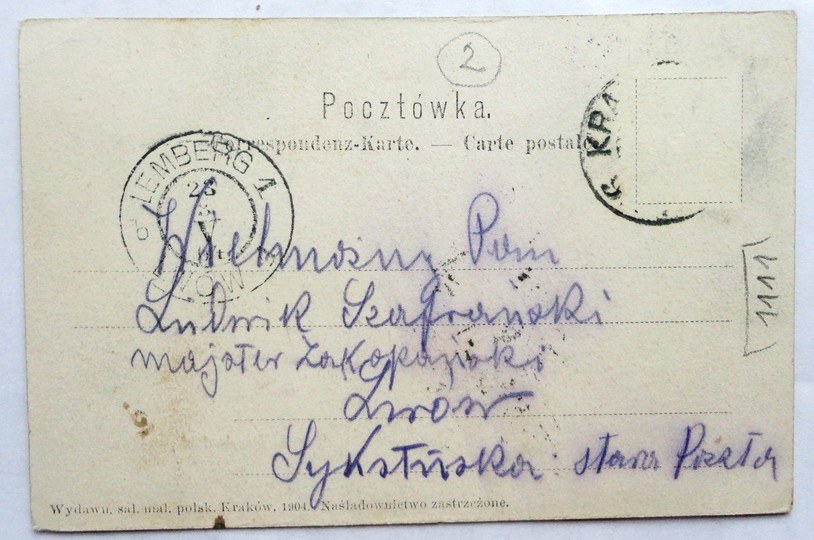 2
Pocztówka.
Correspondenz-Karte. — Carte postale
KRA
LEMBERG 1
23
LWÓW
1111
Wielmożny Pan
Ludwik Szafrański
majster Zakopański
Lwow
Sykstuska: stara Poczta
Wydawn. sal. mal. polsk. Kraków, 1904. Naśladownictwo zastrzeżone.